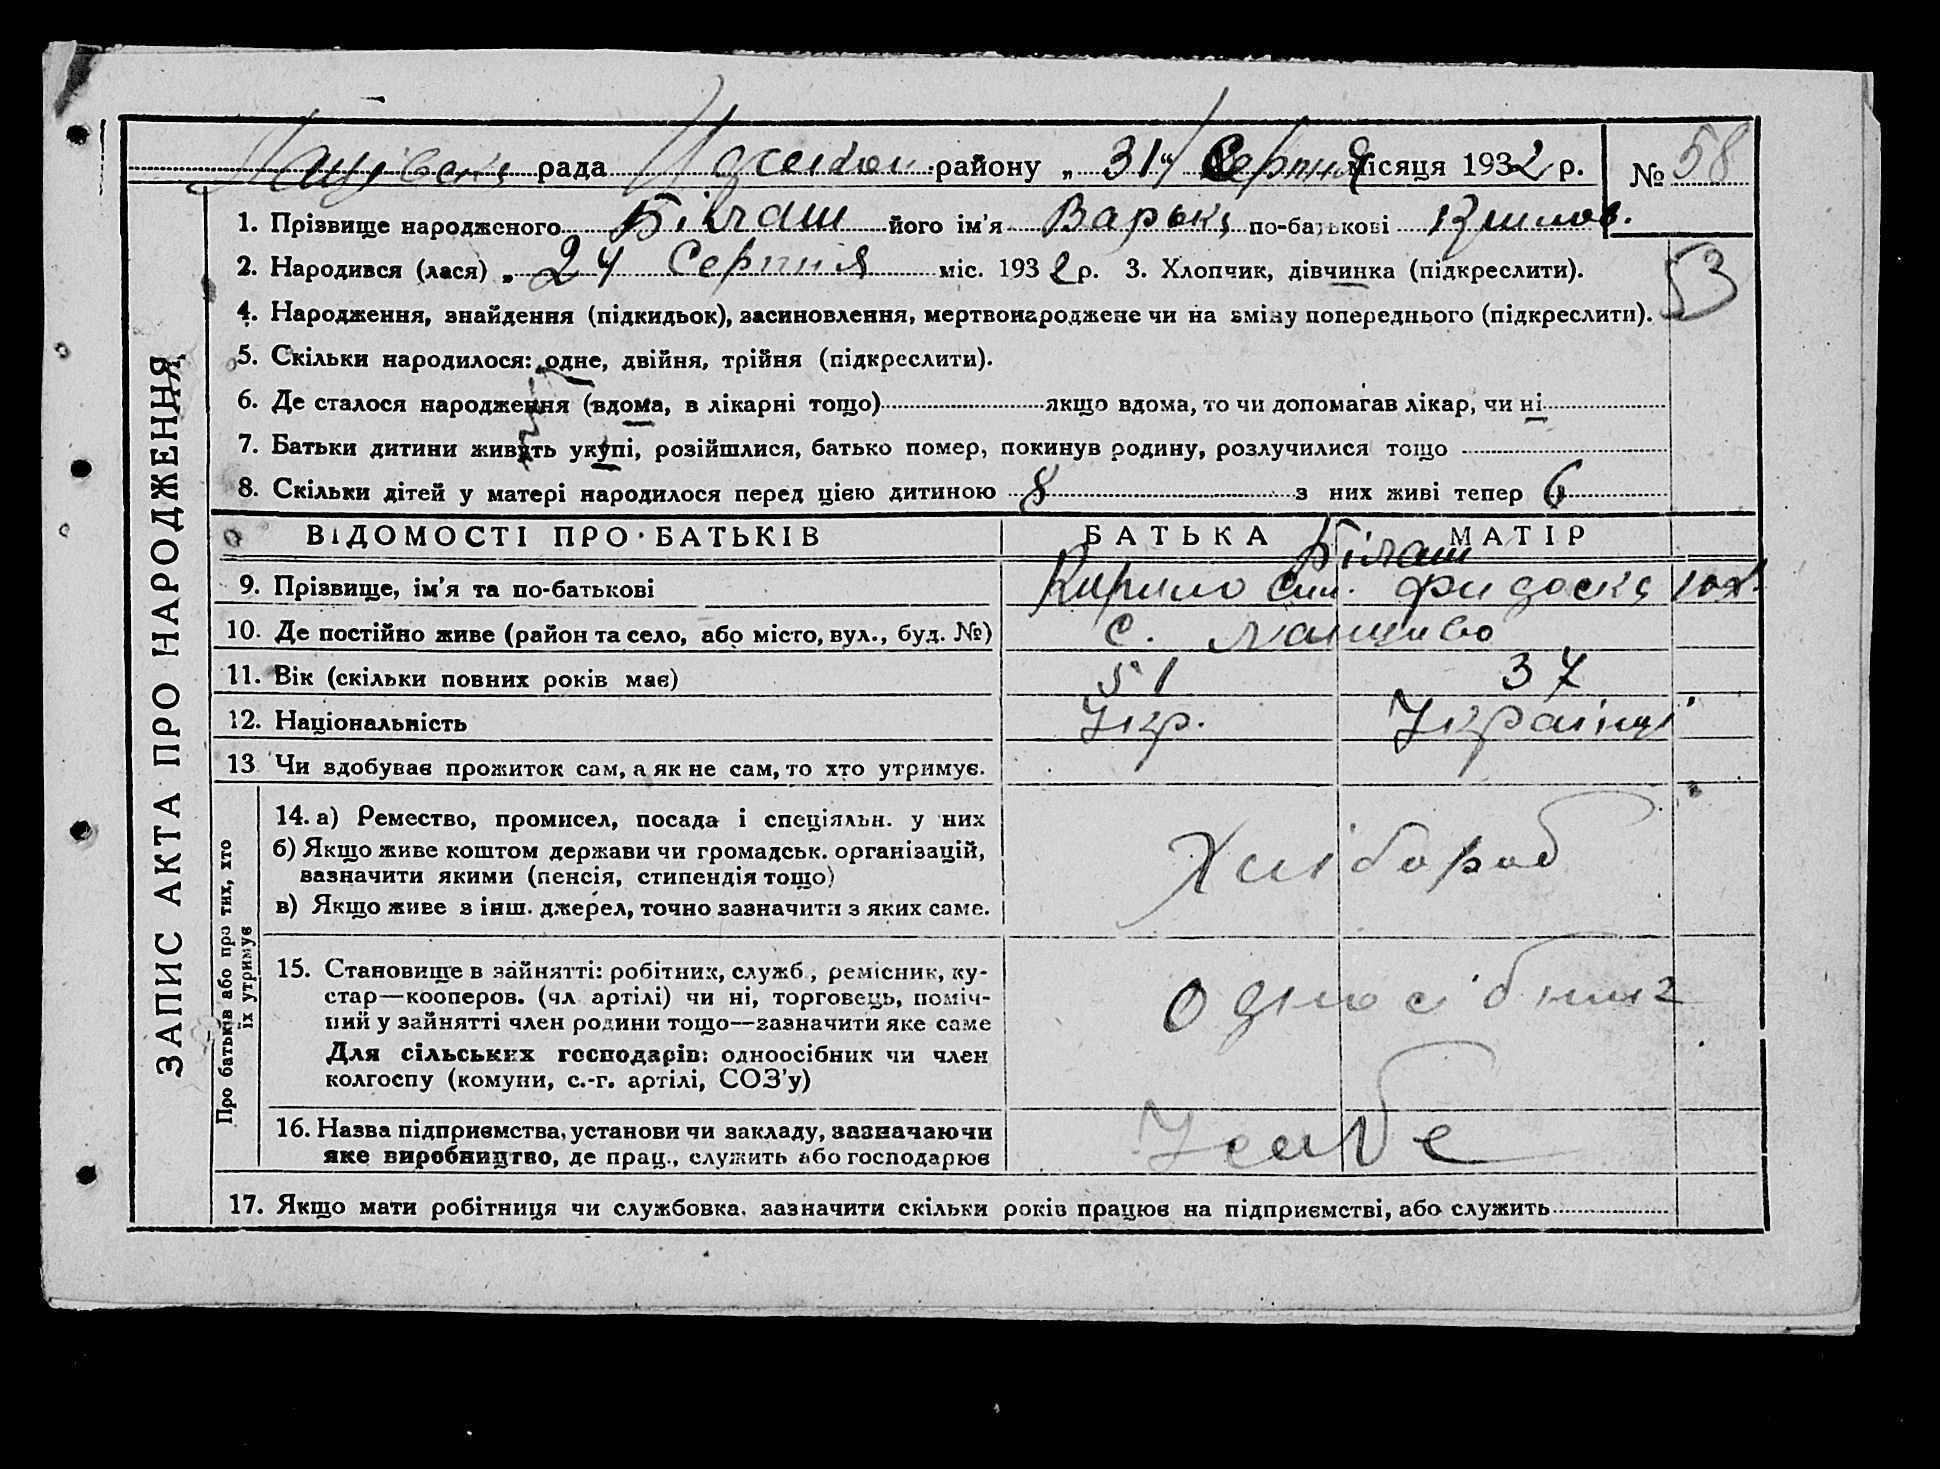 рада района „ 31 “ Серпня місяця 1932 р. № 58
1. Прізвище народженого Білаш його ім'я Варька по-батькові Кирилов.
2. Народився (лася) „ 24 Серпня міс. 1932 р. 3. Хлопчик, дівчинка (підкреслити).
53
4. Народження, знайдення (підкидьок), засиновлення, мертвонароджене чи на зміну попереднього (підкреслити).
5. Скільки народилося: одне, двійня, трійня (підкреслити).
6. Де сталося народження (вдома, в лікарні тощо) якщо вдома, то чи допомагав лікар, чи ні
7. Батьки дитини живуть укупі, розійшлися, батько помер, покинув родину, розлучилися тощо
8. Скільки дітей у матері народилося перед цією дитиною 8 з них живі тепер 6
ВІДОМОСТІ ПРО БАТЬКІВ БАТЬКА МАТІР
Білаш
9. Прізвище, ім'я та по-батькові Кирило Сим. Федоска
10. Де постійно живе (район та село, або місто, вул., буд. №) с.
11. Вік (скільки повних років має) 51 37
12. Національність Укр. Українці
13 Чи здобуває прожиток сам, а як не сам, то хто утримує.
14. а) Ремество, промисел, посада і спеціяльн. у них
б) Якщо живе коштом держави чи громадськ. організацій,
зазначити якими (пенсія, стипендія тощо)
в) Якщо живе з інш. джерел, точно зазначити з яких саме.
Хлібороб
15. Становище в зайнятті: робітник, служб., ремісник, ку-
стар—кооперов. (чл артілі) чи ні, торговець, поміч-
ний у зайнятті член родини тощо—зазначити яке саме
Для сільських господарів: одноосібник чи член
колгоспу (комуни, с.-г. артілі, СОЗ'у)
односібник
16. Назва підприємства, установи чи закладу, зазначаючи
яке виробництво, де прац., служить або господарює
У себе
17. Якщо мати робітниця чи службовка, зазначити скільки років працює на підприємстві, або служить
ЗАПИС АКТА ПРО НАРОДЖЕННЯ
Про батьків або про тих, хто
їх утримує